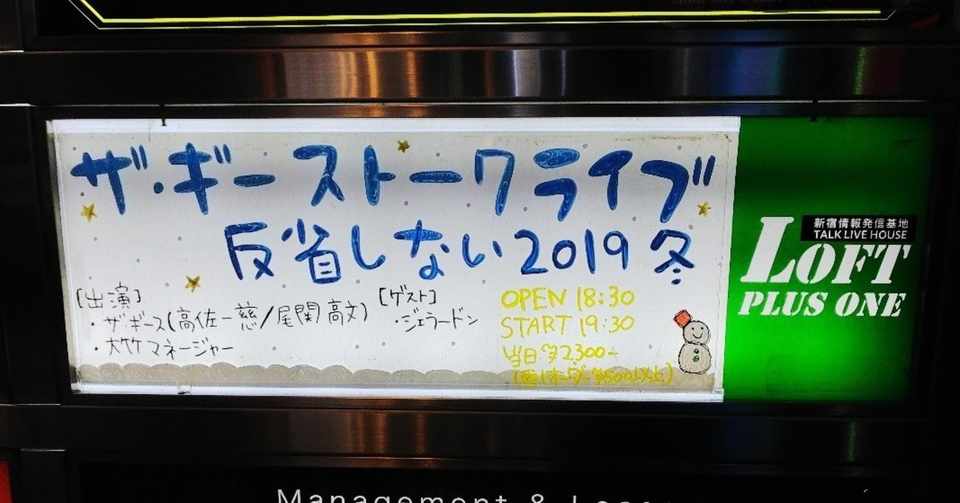 ザ・ギーストークライブ
反省しない2019冬
[出演]
・ザ・ギース(高佐一慈/尾関高文)
・大竹マネージャー
[ゲスト]
・ジェラードン
OPEN 18:30
START 19:30
当日¥2300-
新宿情報発信基地
TALK LIVE HOUSE
LOFT
PLUS ONE
Management &